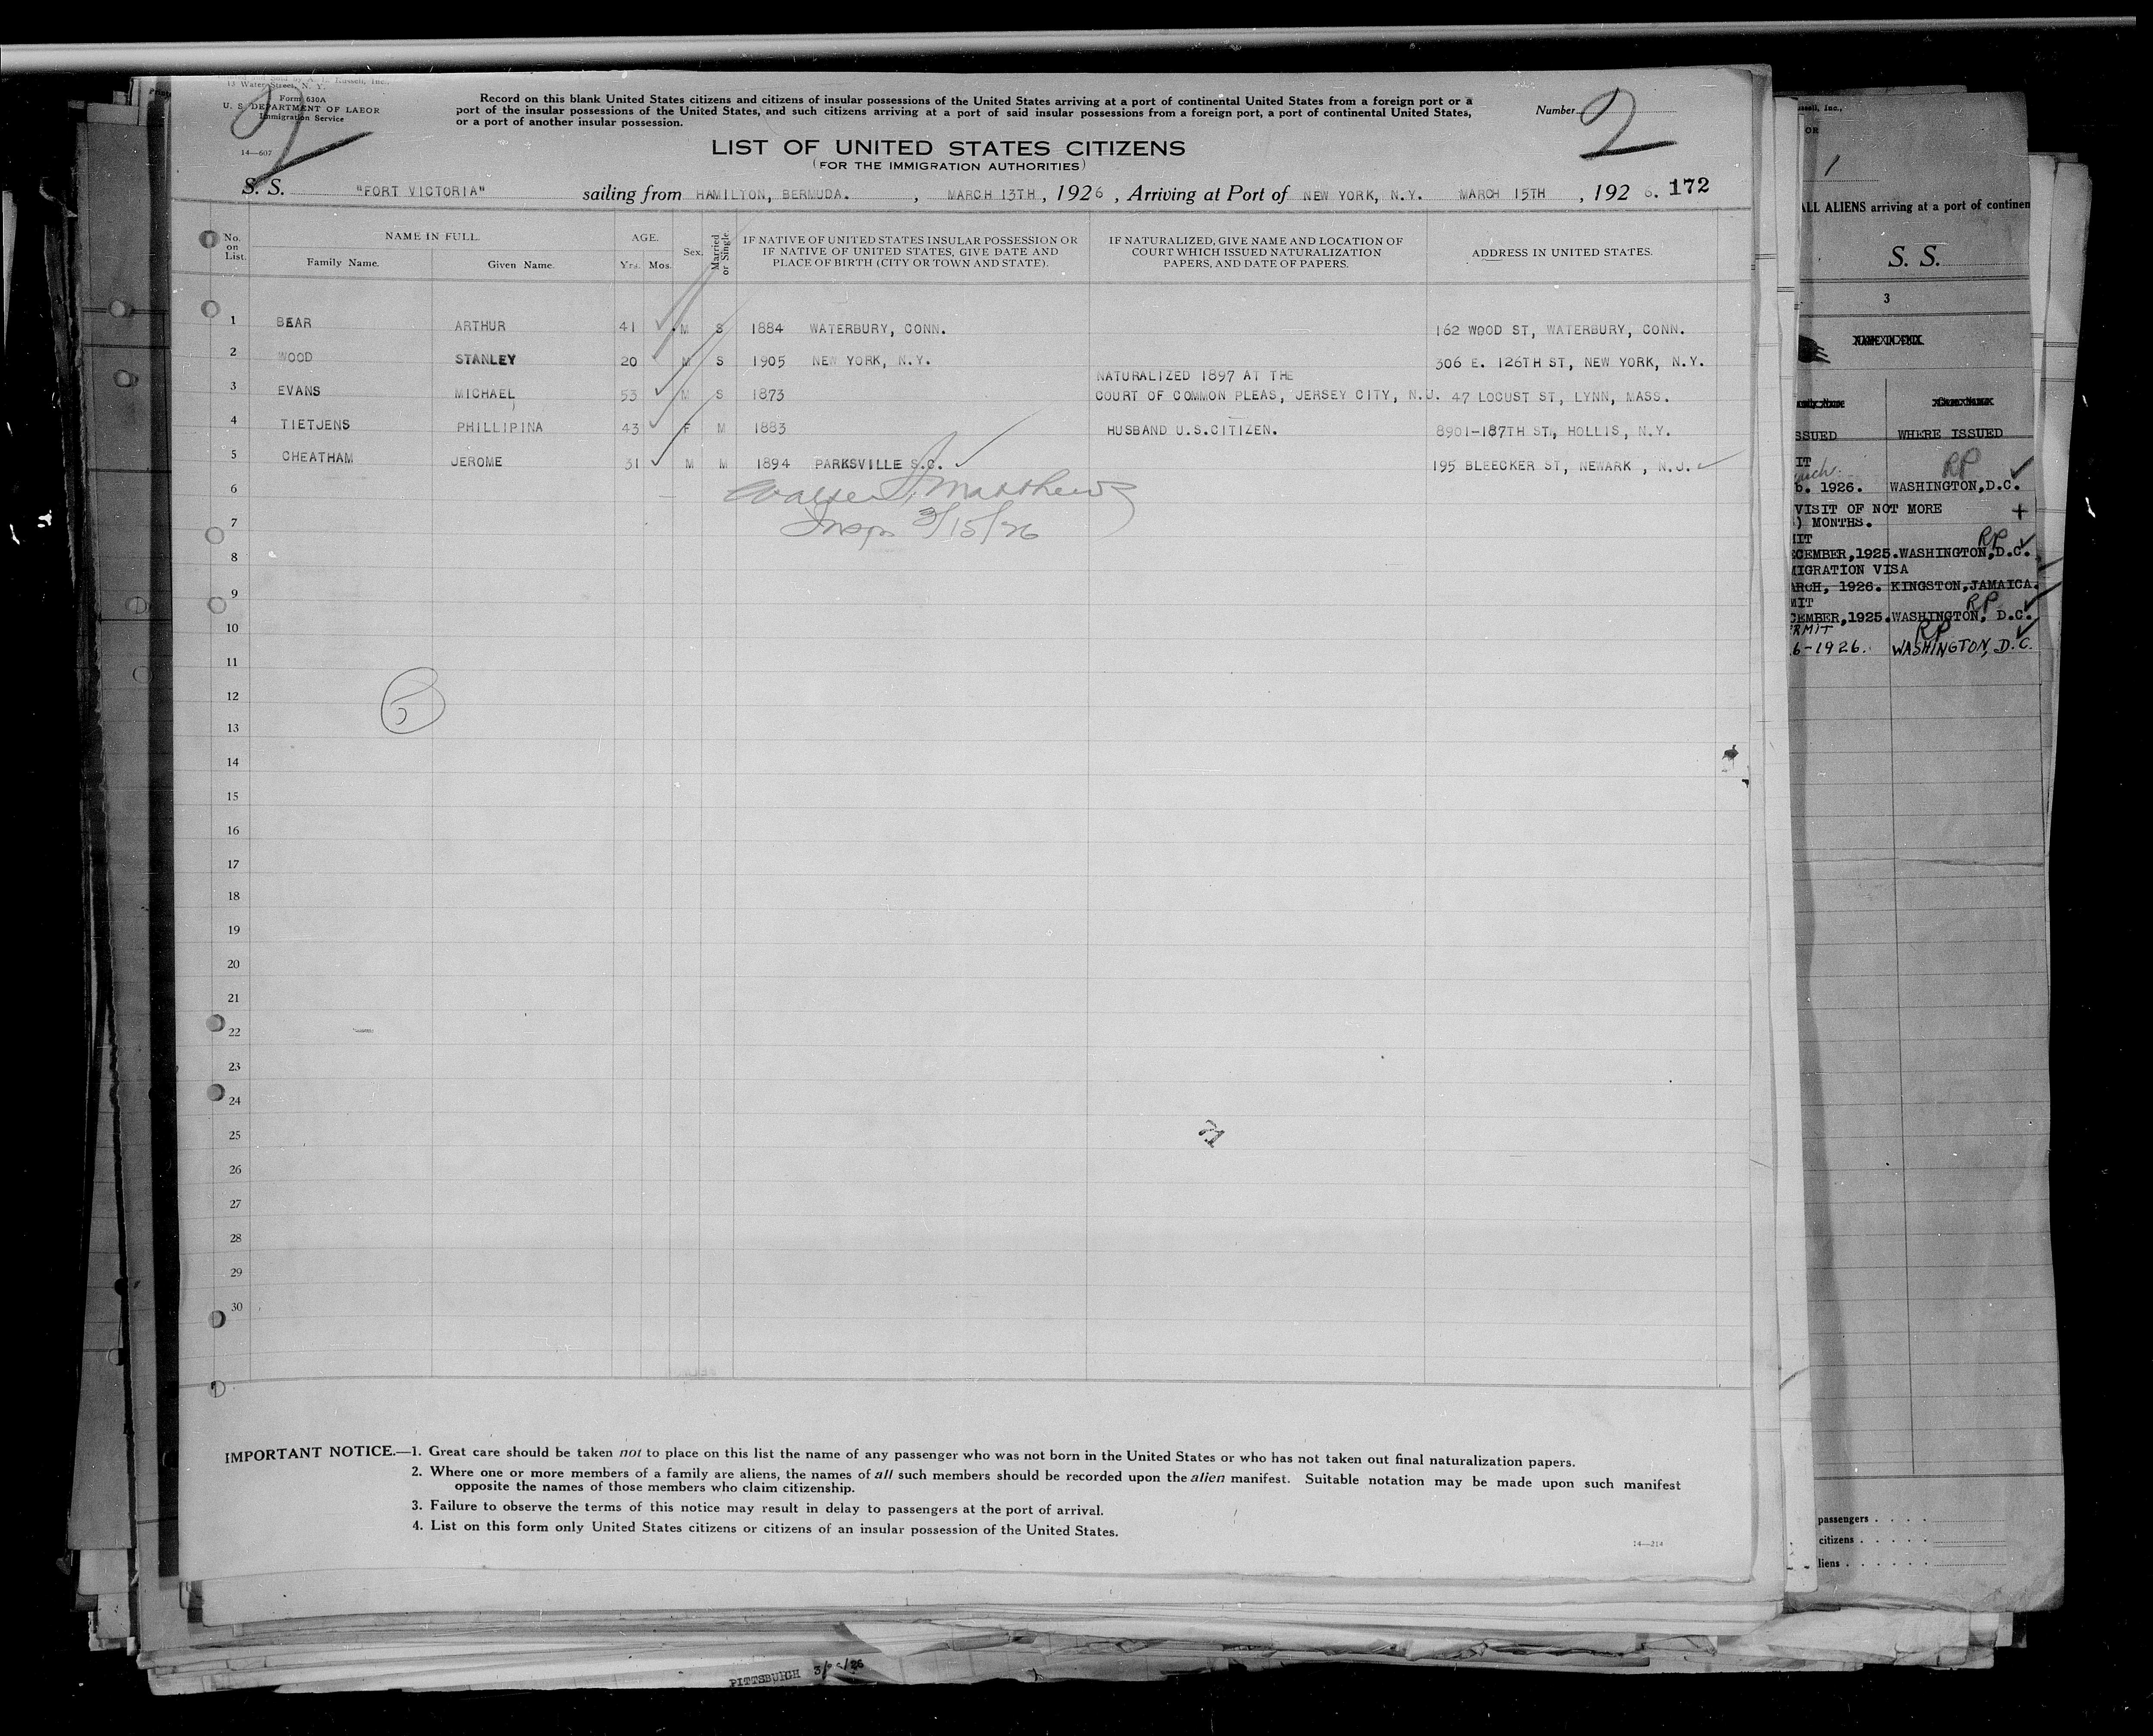 13 Water Street, N. Y.
Form 630A
U. S. DEPARTMENT OF LABOR
Immigration Service
14—607
2
Record on this blank United States citizens and citizens of insular possessions of the United States arriving at a port of continental United States from a foreign port or a
port of the insular possessions of the United States, and such citizens arriving at a port of said insular possessions from a foreign port, a port of continental United States,
or a port of another insular possession.
Number 2
LIST OF UNITED STATES CITIZENS
(FOR THE IMMIGRATION AUTHORITIES)
S. S. "FORT VICTORIA" sailing from HAMILTON, BERMUDA. , MARCH 13TH , 1926 , Arriving at Port of NEW YORK, N.Y. MARCH 15TH , 192 6. 172
No. on List.
NAME IN FULL.
Family Name.
Given Name.
AGE.
Yrs. Mos.
Sex.
Married or Single.
IF NATIVE OF UNITED STATES INSULAR POSSESSION OR
IF NATIVE OF UNITED STATES, GIVE DATE AND
PLACE OF BIRTH (CITY OR TOWN AND STATE).
IF NATURALIZED, GIVE NAME AND LOCATION OF
COURT WHICH ISSUED NATURALIZATION
PAPERS, AND DATE OF PAPERS.
ADDRESS IN UNITED STATES.
1 BEAR ARTHUR 41 M S 1884 WATERBURY, CONN. 162 WOOD ST, WATERBURY, CONN.
2 WOOD STANLEY 20 M S 1905 NEW YORK, N.Y. 306 E. 126TH ST, NEW YORK, N.Y.
NATURALIZED 1897 AT THE
3 EVANS MICHAEL 53 M S 1873 COURT OF COMMON PLEAS, JERSEY CITY, N.J. 47 LOCUST ST, LYNN, MASS.
4 TIETJENS PHILLIPINA 43 F M 1883 HUSBAND U.S.CITIZEN. 8901-187TH ST, HOLLIS, N.Y.
5 CHEATHAM JEROME 31 M M 1894 PARKSVILLE S.C. 195 BLEECKER ST, NEWARK , N.J.
6 Walter H. Matthews
7 Insp 3/15/26
8
9
10
11
12
5
13
14
15
16
17
18
19
20
21
22
23
24
25
26
27
28
29
30
IMPORTANT NOTICE.—1. Great care should be taken not to place on this list the name of any passenger who was not born in the United States or who has not taken out final naturalization papers.
2. Where one or more members of a family are aliens, the names of all such members should be recorded upon the alien manifest. Suitable notation may be made upon such manifest
opposite the names of those members who claim citizenship.
3. Failure to observe the terms of this notice may result in delay to passengers at the port of arrival.
4. List on this form only United States citizens or citizens of an insular possession of the United States.
14—214
1
ALL ALIENS arriving at a port of continen
S. S.
3
ISSUED WHERE ISSUED
RP
1926. WASHINGTON,D.C.
VISIT OF NOT MORE
MONTHS.
RP
CEMBER,1925.WASHINGTON,D.C.
MIGRATION VISA
ARCH, 1926. KINGSTON,JAMAICA.
MIT RP
CEMBER,1925.WASHINGTON, D.C.
RMIT RP
6-1926. WASHINGTON, D.C.
passengers
citizens
liens
PITTSBURGH